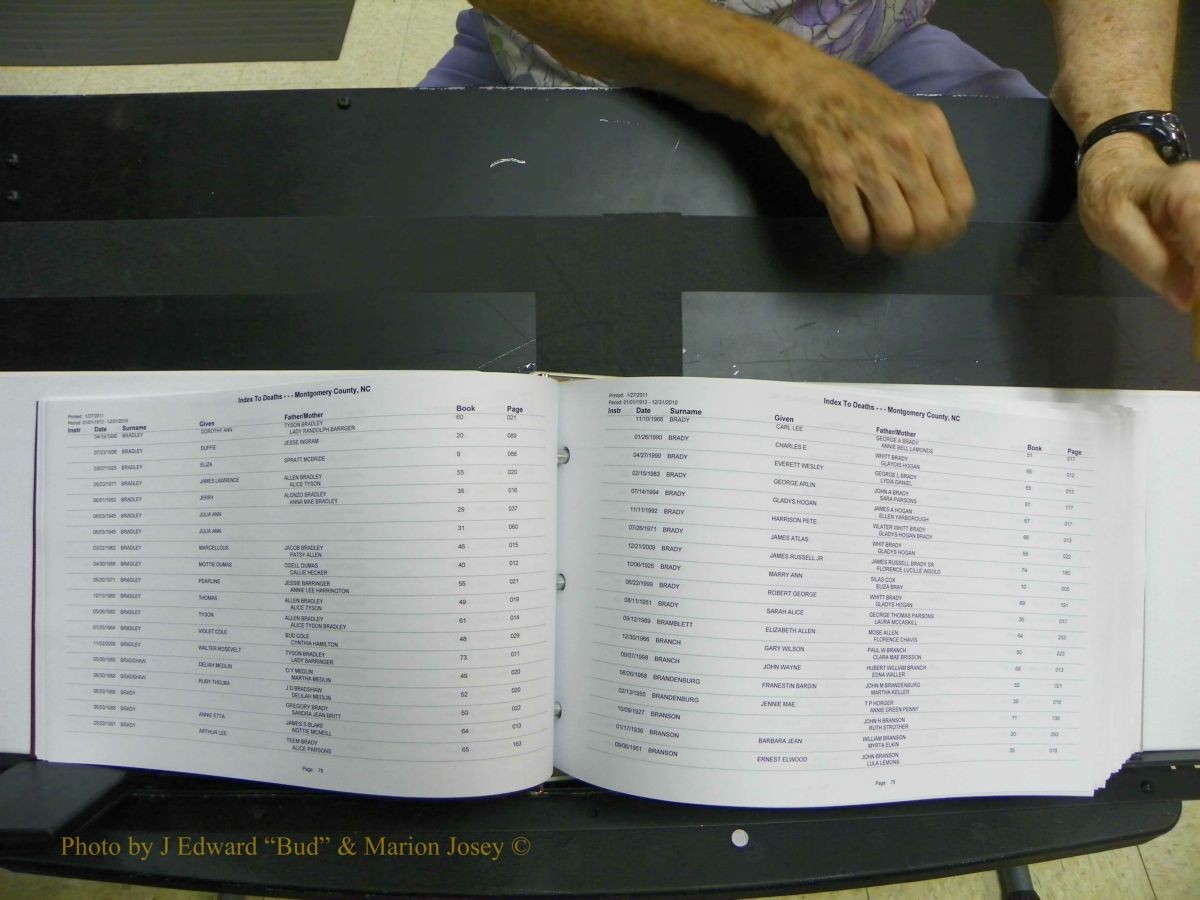 Index To Deaths - - - Montgomery County, NC
Printed: 1/27/2011
Period: 01/01/1913 - 12/31/2010
Instr Date Surname Given Father/Mother Book Page
BRADLEY DOROTHY ANN TYSON BRADLEY 60 021
LADY RANDOLPH BARRGER
BRADLEY DUFFIE JESSE INGRAM 20 089
BRADLEY ELIZA SPRATT MCBRIDE 9 088
BRADLEY JAMES LAWRENCE ALLEN BRADLEY 55 020
ALICE TYSON
BRADLEY JERRY ALONZO BRADLEY 36 016
ANNA MAE BRADLEY
BRADLEY JULIA ANN 29 037
BRADLEY JULIA ANN 31 060
BRADLEY MARCELLOUS JACOB BRADLEY 46 015
PATSY ALLEN
BRADLEY MOTTIE DUMAS ODELL DUMAS 40 012
CALLIE HECKER
BRADLEY PEARLINE JESSIE BARRINGER 55 021
ANNIE LEE HARRINGTON
BRADLEY THOMAS ALLEN BRADLEY 49 019
ALICE TYSON
BRADLEY TYSON ALLEN BRADLEY 61 014
ALICE TYSON BRADLEY
BRADLEY VIOLET COLE BUD COLE 48 029
CYNTHIA HAMILTON
BRADLEY WALTER ROSEVELT TYSON BRADLEY 73 011
LADY BARRINGER
BRADSHAW DELILAH MEDLIN O.Y MEDLIN 49 020
MARTHA MEDLIN
BRADSHAW RUBY THELMA J D BRADSHAW 52 020
DELILAH MEDLIN
BRADY GREGORY BRADY 50 022
SANDRA JEAN BRITT
BRADY ANNIE ETTA JAMES S BLAKE 64 013
NOTTIE MCNEILL
BRADY ARTHUR LEE TEEM BRADY 65 163
ALICE PARSONS
Page 78
Index To Deaths - - - Montgomery County, NC
Printed: 1/27/2011
Period: 01/01/1913 - 12/31/2010
Instr Date Surname Given Father/Mother Book Page
11/10/1966 BRADY CARL LEE GEORGE A BRADY 51 017
ANNIE BELL LAMONDS
01/26/1990 BRADY CHARLES E. WHITT BRADY 012
GLAYDIS HOGAN
04/27/1990 BRADY EVERETT WESLEY GEORGE L BRADY 013
LYDIA DANIEL
02/15/1983 BRADY GEORGE ARLIN JOHN A BRADY 61 177
SARA PARSONS
07/14/1994 BRADY GLADYS HOGAN JAMES A HOGAN 67 017
ELLEN YARBOROUGH
11/11/1992 BRADY HARRISON PETE WLATER WHITT BRADY 66 013
GLADYS HOGAN BRADY
07/26/1971 BRADY JAMES ATLAS WHIT BRADY 55 022
GLADYS HOGAN
12/21/2009 BRADY JAMES RUSSELL JR JAMES RUSSELL BRADY SR 74
FLORENCE LUCILLE INGOLD
10/06/1926 BRADY MARRY ANN SILAS COX 10
ELIZA BRAY
06/22/1999 BRADY ROBERT GEORGE WHITT BRADY 69 191
GLADYS HOGAN
08/11/1951 BRADY SARAH ALICE GEORGE THOMAS PARSONS 35 017
LAURA MCCASKILL
09/12/1989 BRAMBLETT ELIZABETH ALLEN MOSE ALLEN 64
FLORENCE CHAVIS
12/30/1966 BRANCH GARY WILSON PAUL W BRANCH 50 023
CLARA MAE BRISSON
09/07/1998 BRANCH JOHN WAYNE HUBERT WILLIAM BRANCH 013
EDNA WALLER
06/26/1968 BRANDENBURG FRANESTIN BARDIN JOHN M BRANDENBURG 52 021
MARTHA KELLER
02/13/1955 BRANDENBURG JENNIE MAE T P HORGER 39 018
ANNIE GREEN PENNY
10/09/1927 BRANSON JOHN H BRANSON 11 136
RUTH STROTHER
01/17/1936 BRANSON BARBARA JEAN WILLIAM BRANSON 20
MYRTA ELKIN
09/06/1951 BRANSON ERNEST ELWOOD JOHN BRANSON 35 018
LULA LEMONS
Page 79
Photo by J Edward “Bud” & Marion Josey ©